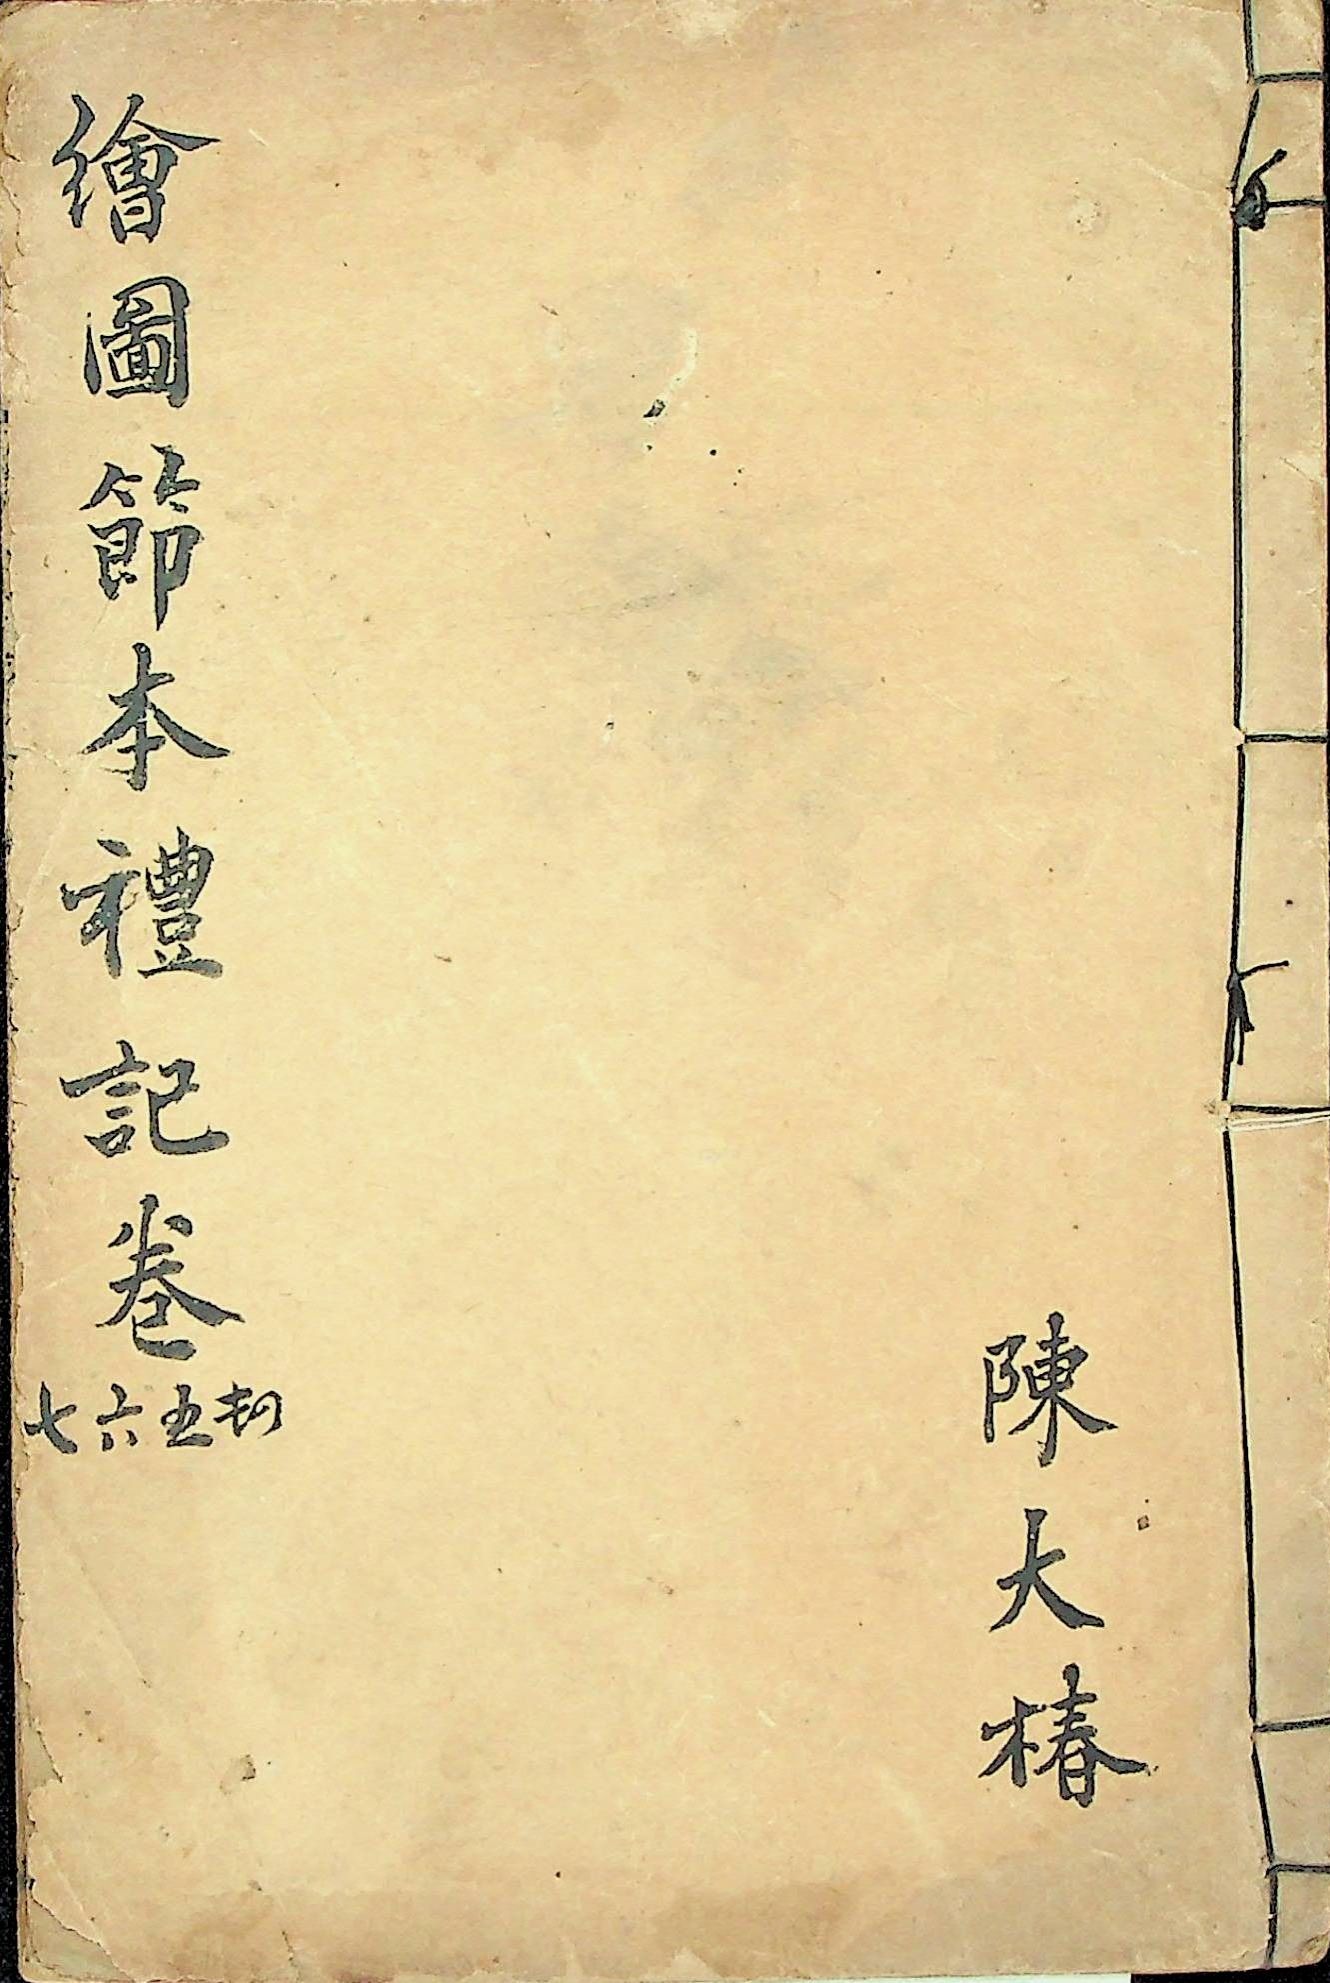 陳大椿
繪圖節本禮記卷
五六七